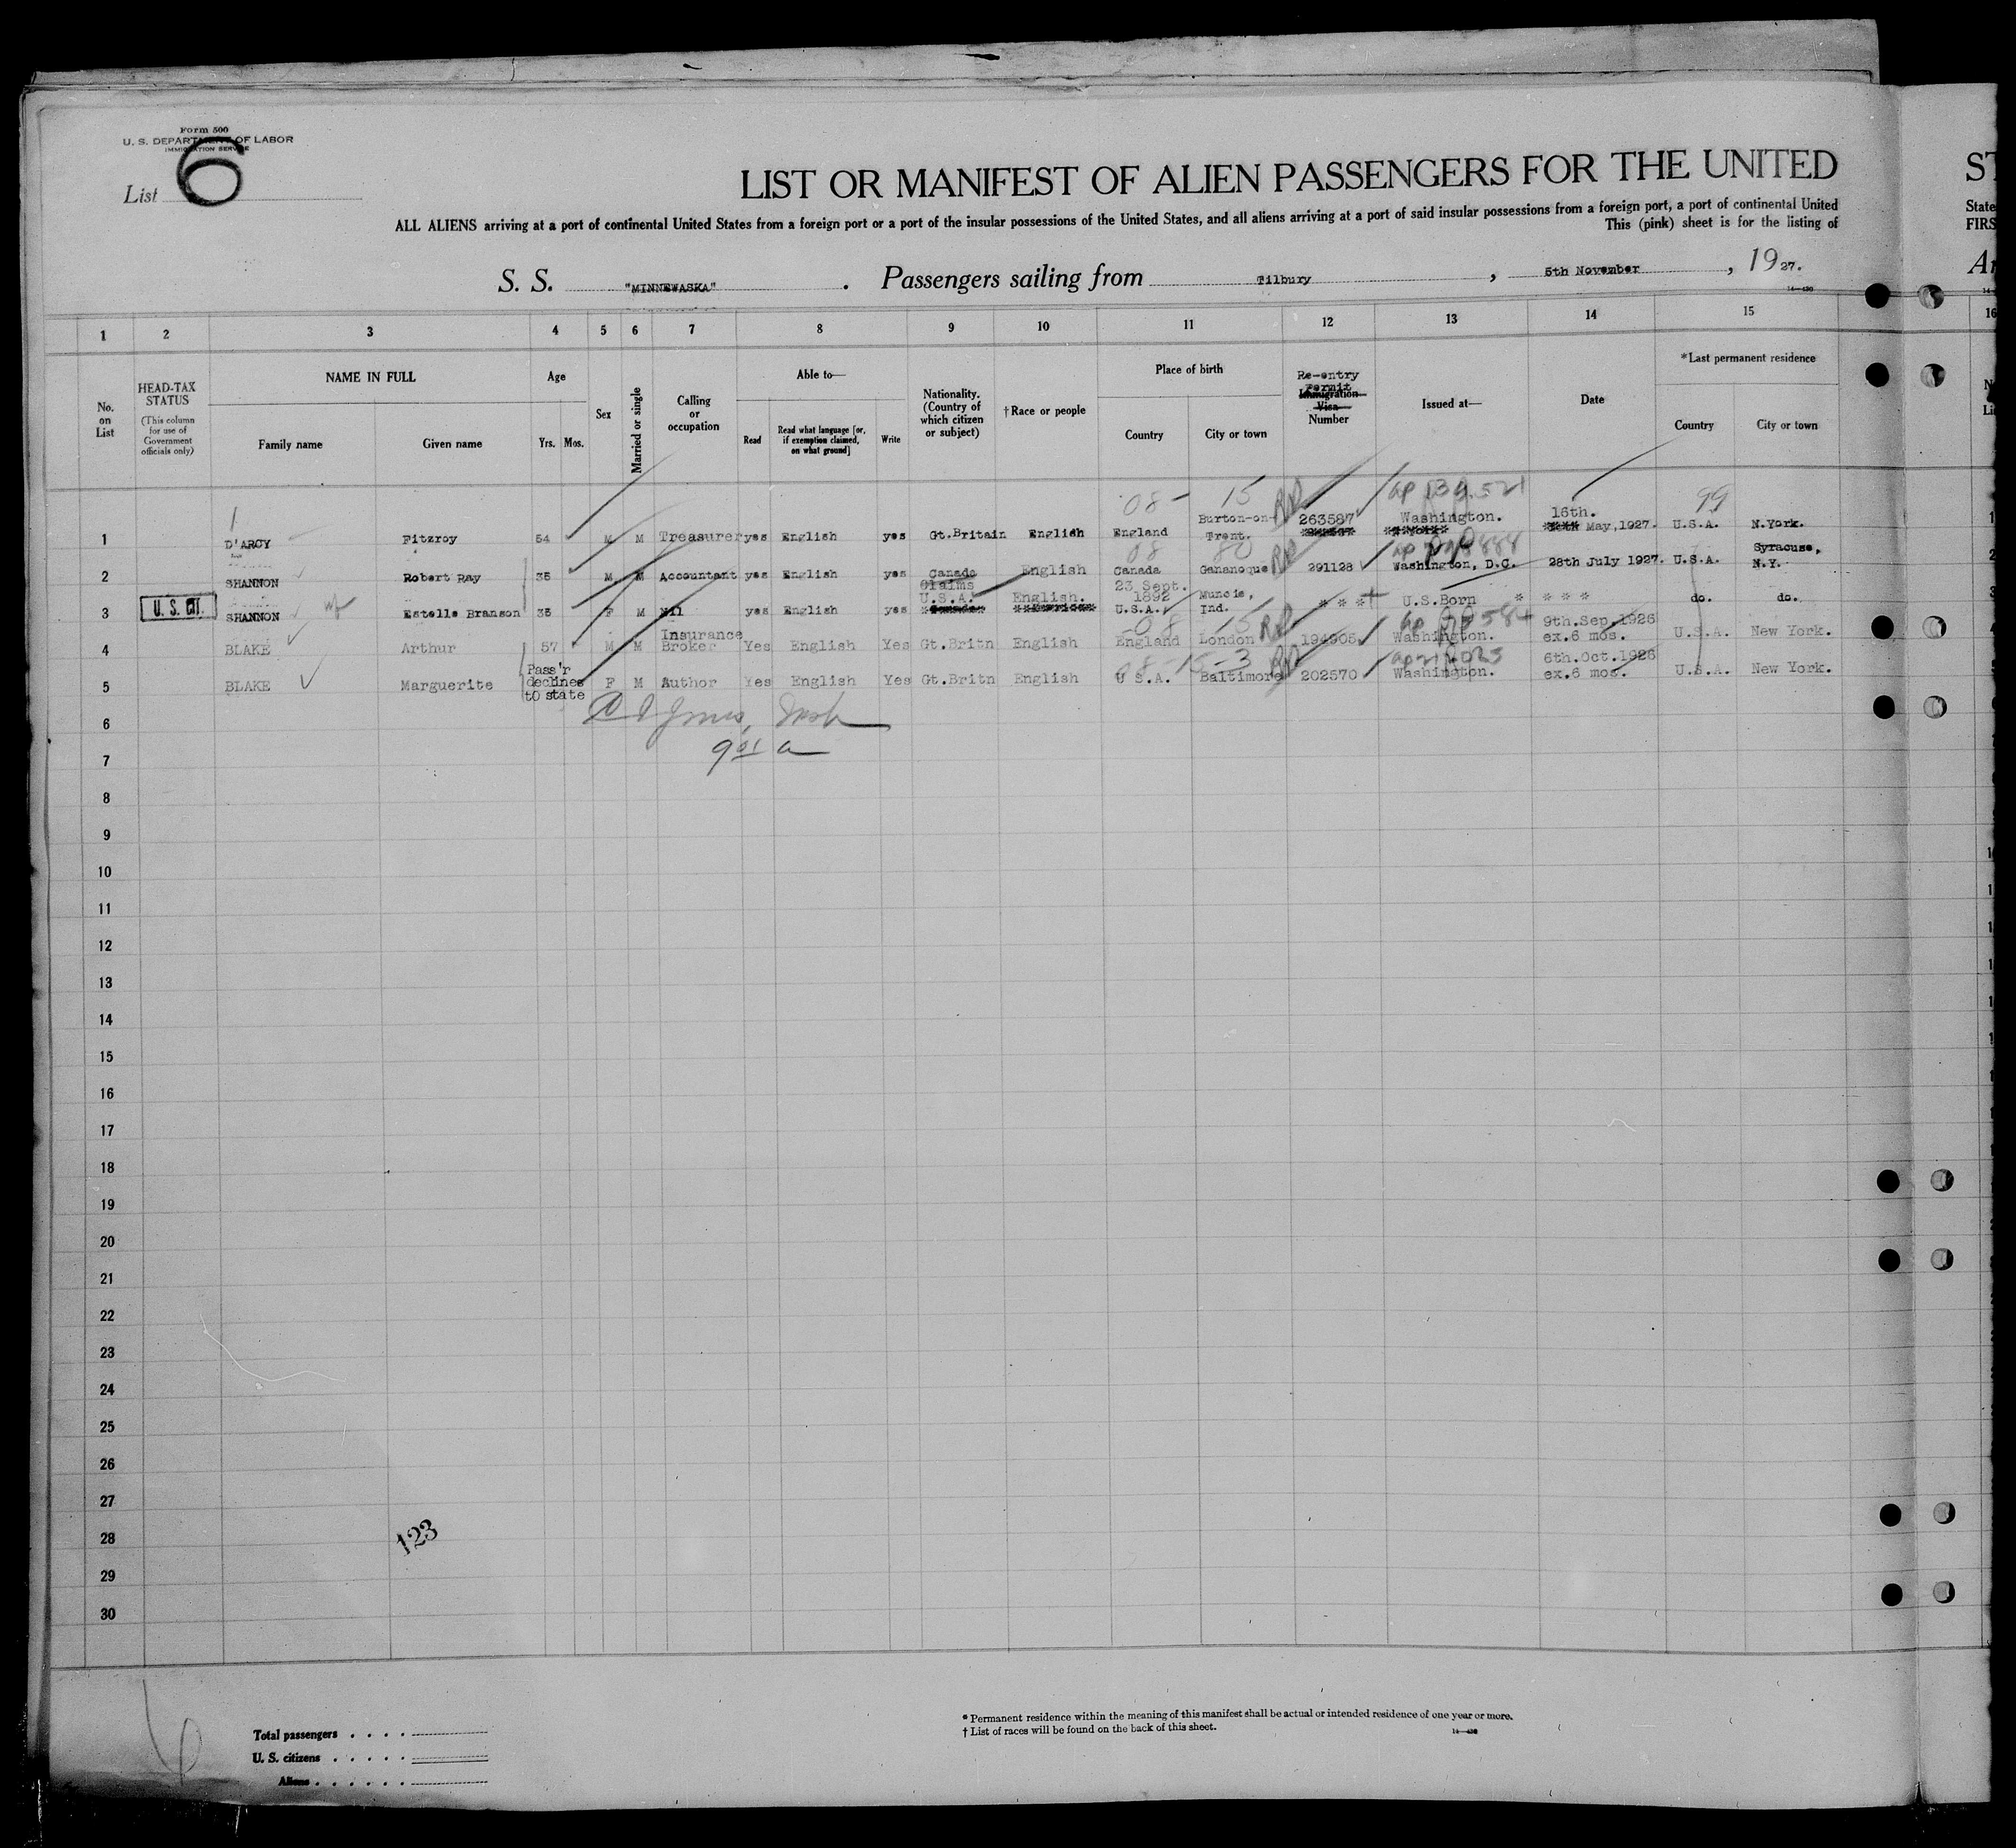 Form 500
U. S. DEPARTMENT OF LABOR
IMMIGRATION SERVICE
List 6
LIST OR MANIFEST OF ALIEN PASSENGERS FOR THE UNITED
ALL ALIENS arriving at a port of continental United States from a foreign port or a port of the insular possessions of the United States, and all aliens arriving at a port of said insular possessions from a foreign port, a port of continental United
This (pink) sheet is for the listing of
S. S. "MINNEWASKA" . Passengers sailing from Tilbury , 5th November , 19 27.
1 2 3 4 5 6 7 8 9 10 11 12 13 14 15
No. on List
HEAD-TAX STATUS
(This column for use of Government officials only)
NAME IN FULL
Family name Given name
Age
Yrs. Mos.
Sex
Married or single
Calling or occupation
Able to—
Read
Read what language [or, if exemption claimed, on what ground]
Write
Nationality. (Country of which citizen or subject)
†Race or people
Place of birth
Country City or town
Re-entry Permit
Immigration Visa Number
Issued at—
Date
*Last permanent residence
Country City or town
08- 15 99
1 D'ARCY Fitzroy 54 M M Treasurer yes English yes Gt.Britain English England Burton-on-Trent. 263587 Washington. 16th. May,1927. U.S.A. N.York.
08 80
2 SHANNON Robert Ray 35 M M Accountant yes English yes Canada English Canada Gananoque 291128 Washington, D.C. 28th July 1927. U.S.A. Syracuse, N.Y.
3 U. S. CIT. SHANNON wf Estelle Branson 35 F M Nil yes English yes Claims U.S.A. English. 23 Sept. 1892 U.S.A. Muncie, Ind. * * * U.S.Born * * * * do. do.
08 15
4 BLAKE Arthur 57 M M Insurance Broker Yes English Yes Gt.Britn English England London 194905 Washington. 9th.Sep.1926 ex.6 mos. U.S.A. New York.
08-15-3
5 BLAKE Marguerite Pass'r declines to state F M Author Yes English Yes Gt.Britn English U S.A. Baltimore 202570 Washington. 6th.Oct.1926 ex.6 mos. U.S.A. New York.
6
7
8
9
10
11
12
13
14
15
16
17
18
19
20
21
22
23
24
25
26
27
28 123
29
30
Total passengers . . . .
U. S. citizens . . . . .
Aliens . . . . . .
* Permanent residence within the meaning of this manifest shall be actual or intended residence of one year or more.
† List of races will be found on the back of this sheet.